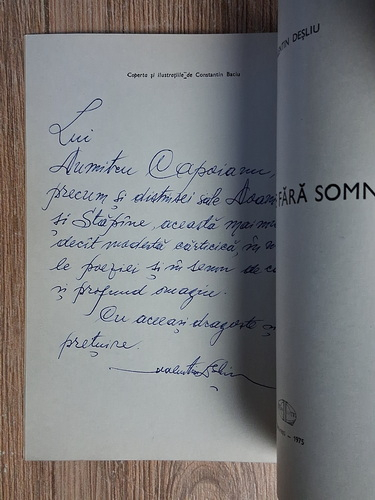 Coperta și ilustrațiile de Constantin Baciu
Lui
Dumitru Capoianu,
precum și distinsei sale Doam
și Stăpîne, această mai mu
decît modestă cărticică, în n
le poeziei și în semn de ca
și profund omagiu.
Cu aceeași dragoste și
prețuire.
NTIN DEȘLIU
FĂRĂ SOMN
– 1975